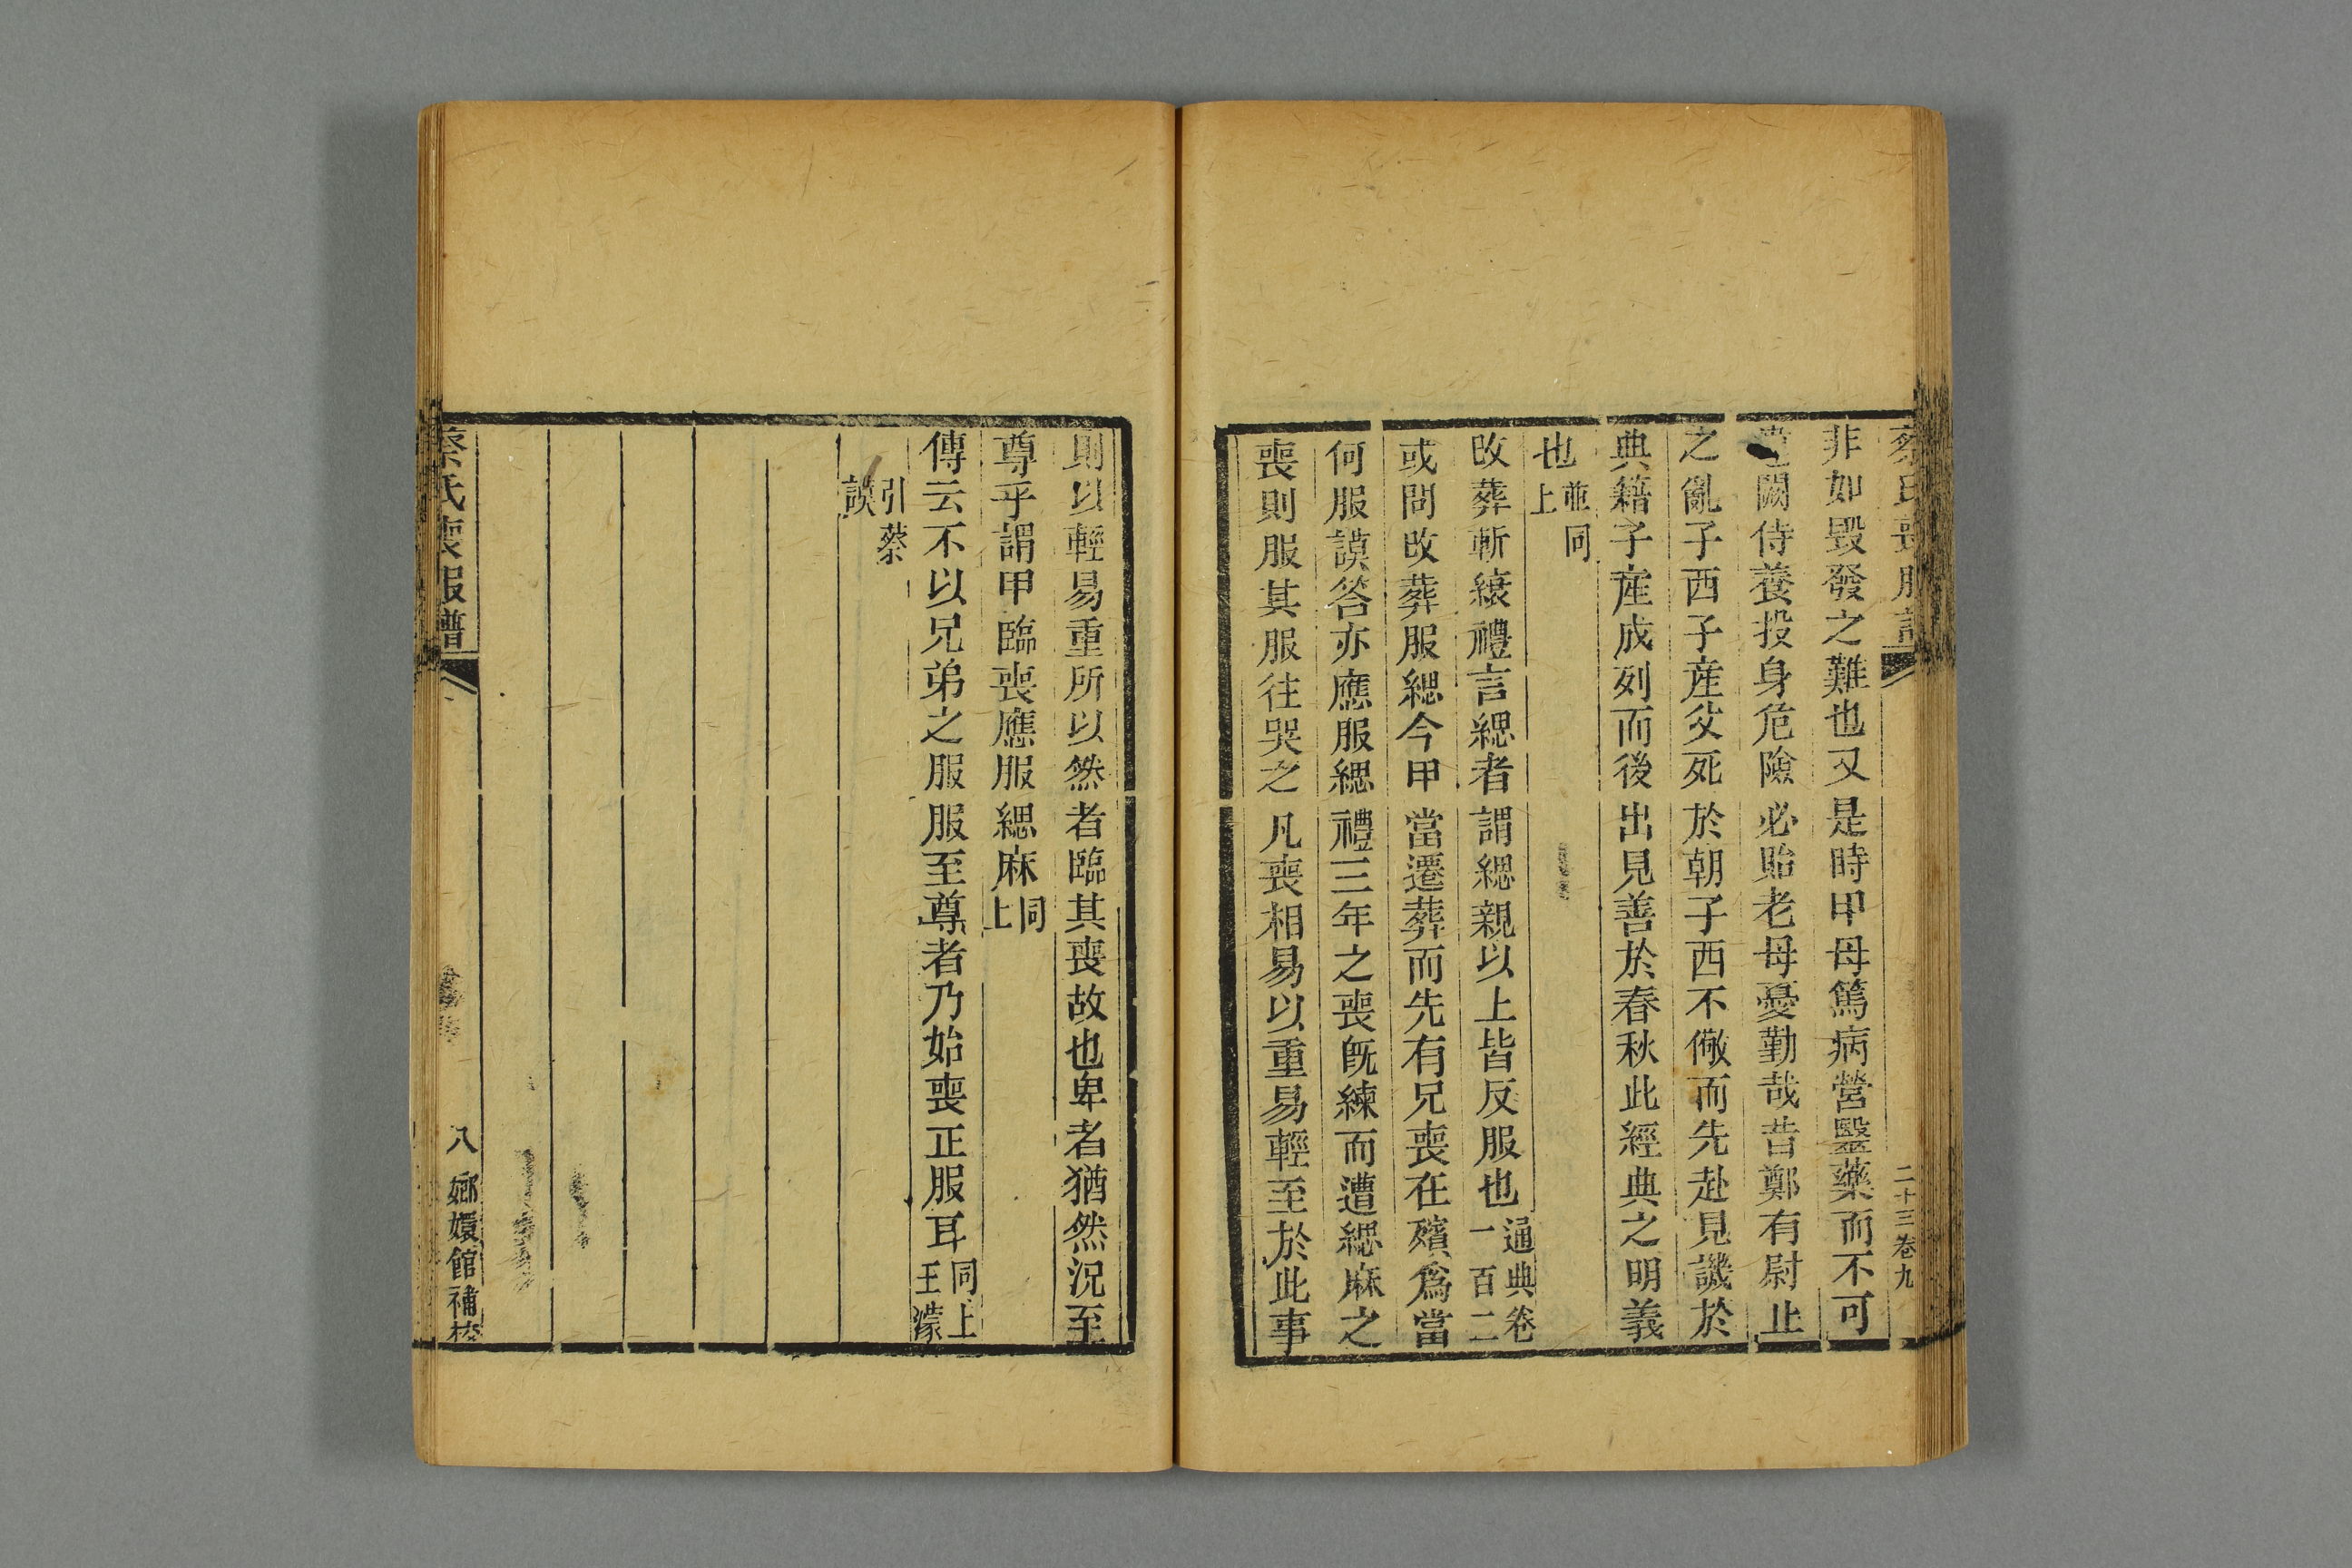 蔡氏喪服譜
二十三卷九
非如毀發之難也又是時甲母篤病營毉藥而不可
闕侍養投身危險必貽老母憂勤哉昔鄭有尉止
之亂子西子産父死於朝子西不儆而先赴見譏於
典籍子産成列而後出見善於春秋此經典之明義
也並同上
改葬斬縗禮言緦者謂緦親以上皆反服也通典卷一百二
或問改葬服緦今甲當遷葬而先有兄喪在殯爲當
何服謨答亦應服緦禮三年之喪旣練而遭緦麻之
喪則服其服往哭之凡喪相易以重易輕至於此事
則以輕易重所以然者臨其喪故也卑者猶然況至
尊乎謂甲臨喪應服緦麻同上
傳云不以兄弟之服服至尊者乃始喪正服耳同上王濛
引蔡謨
蔡氏喪服譜
八
嫏嬛館補校